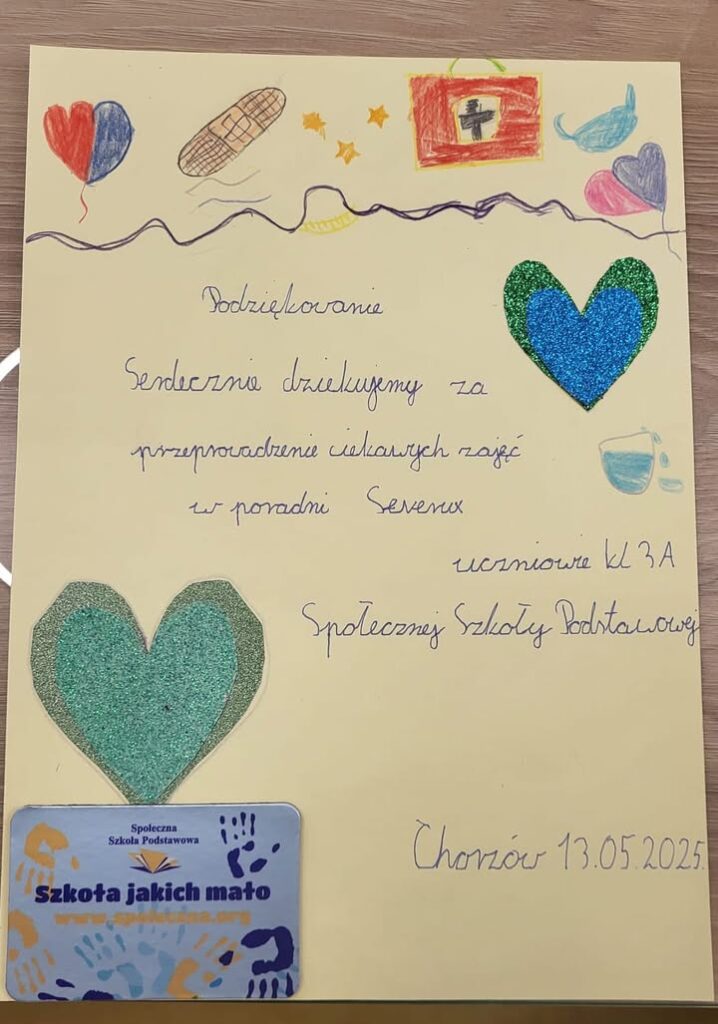 Podziękowanie
Serdecznie dziekujemy za
przeprowadzenie ciekawych zajęć
w poradni Serenux
uczniowie kl 3A
Społecznej Szkoły Podstawowej
Chorzów 13.05.2025.
Społeczna
Szkoła Podstawowa
Szkoła jakich mało
www.spoleczna.org